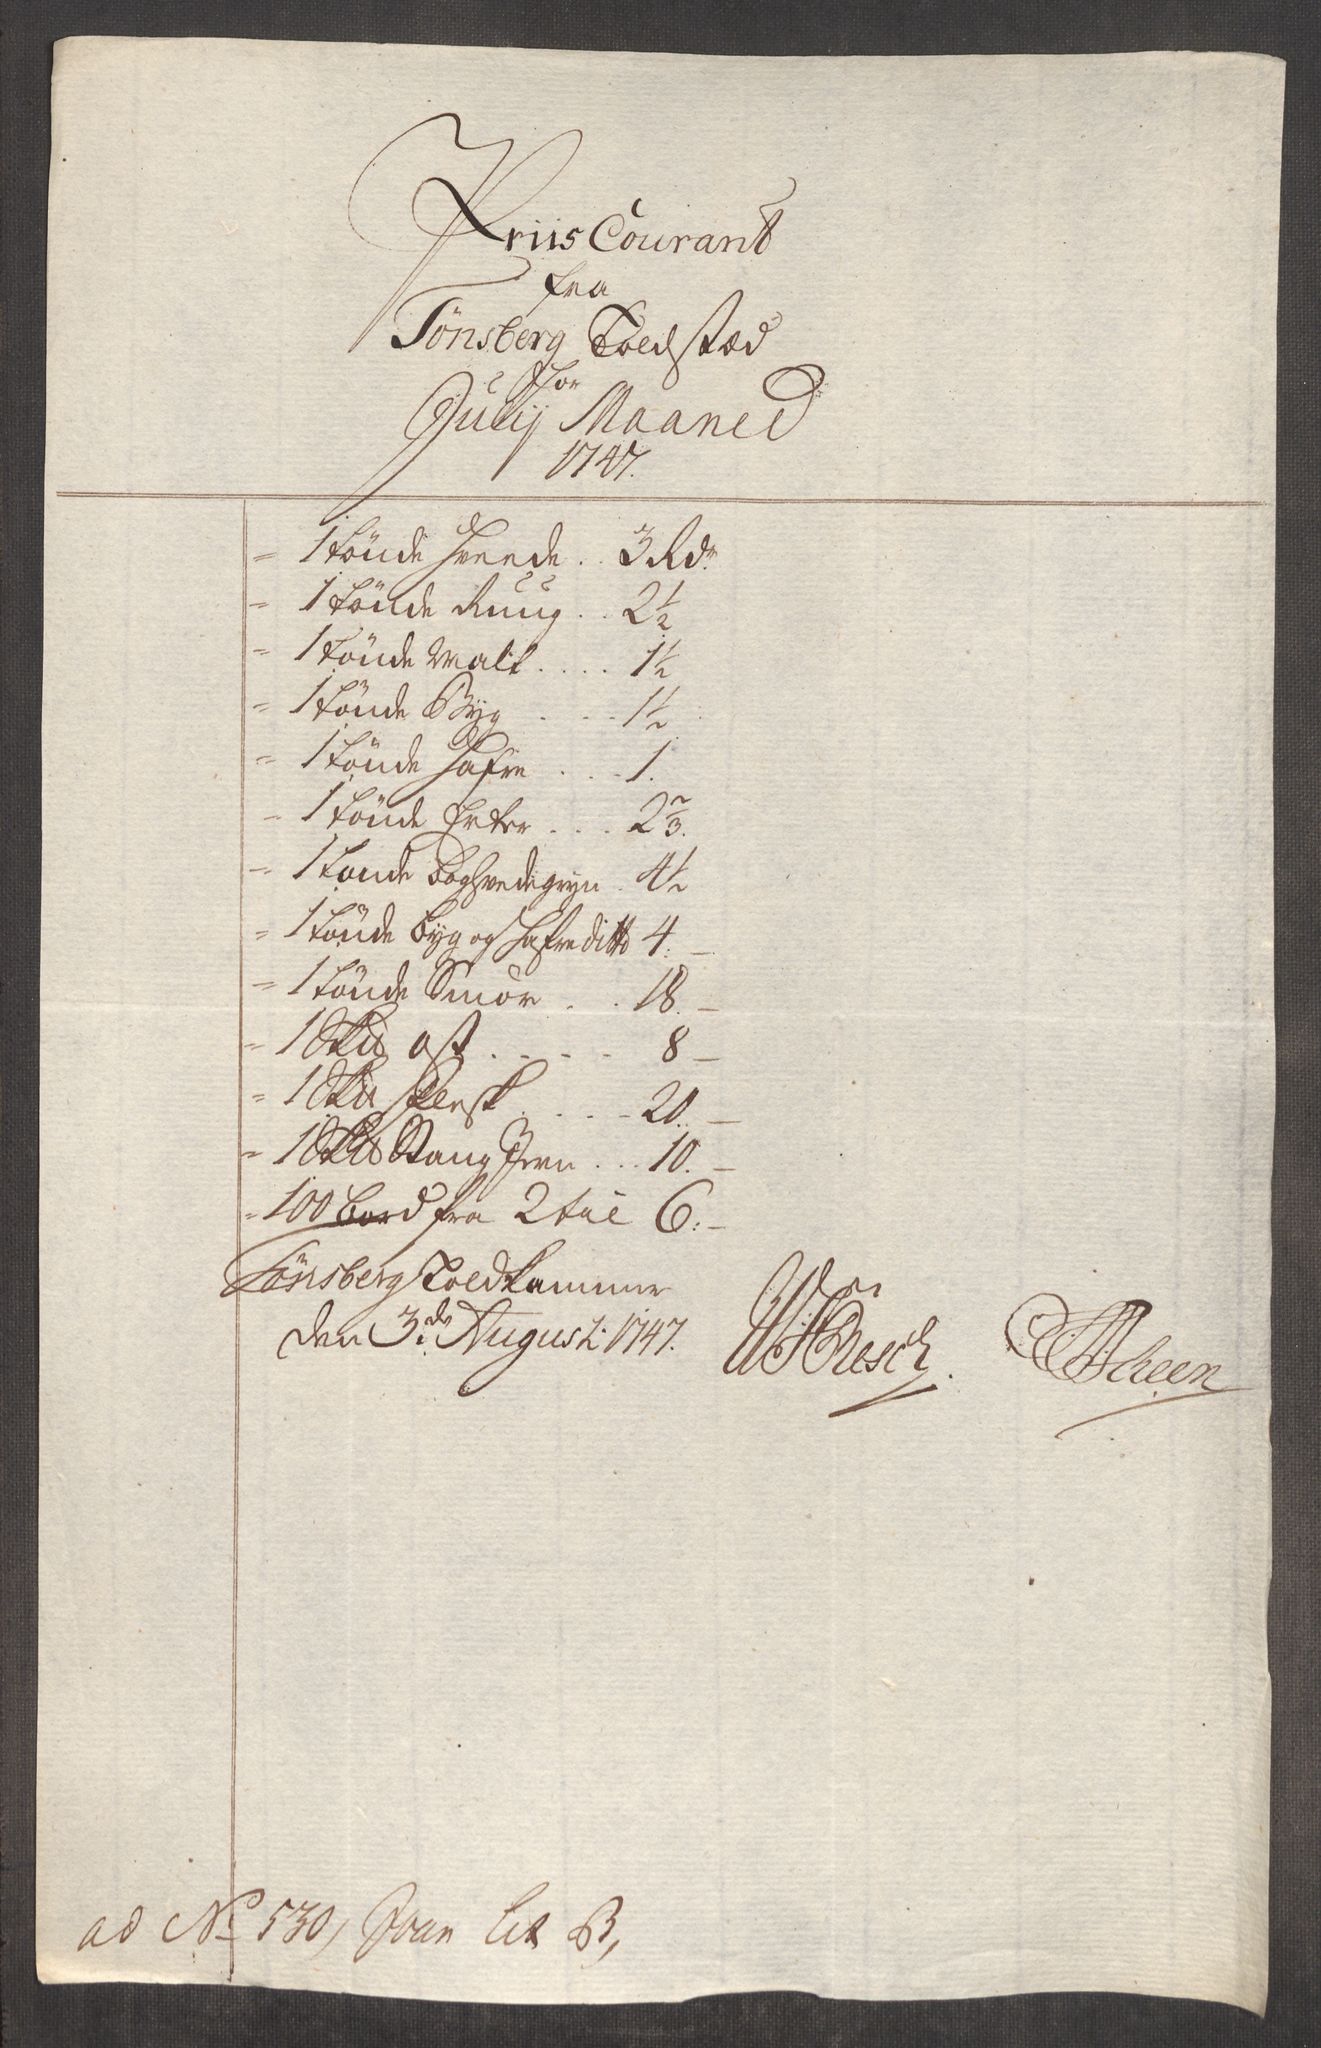 Priis Courant
fra
Tönsberg Toldstæd
for
Julij Maaned
1747.
= 1 tönde Hveede . . 3 Rdr
= 1 tönde Ruug . . 2 1/2
= 1 tönde Malt . . . . 1 1/2
= 1 tönde Byg . . . . 1 1/2
= 1 tönde Hafre . . . 1.
= 1 tönde Erter . . . 2 2/3.
= 1 tönde Boghvedegryn . 4 1/2
= 1 tönde byg og Hafre ditto 4. –
= 1 tönde Smör . . . 18. –
= 1 ost . . . . . 8 –
= 1 flesk . . . . . 20. –
= 1 Stang Jern . . . 10. –
= 100 bord fra 2 6: –
Tönsberg Toldkammer
den 3de August: 1747.
ad No 530, B,